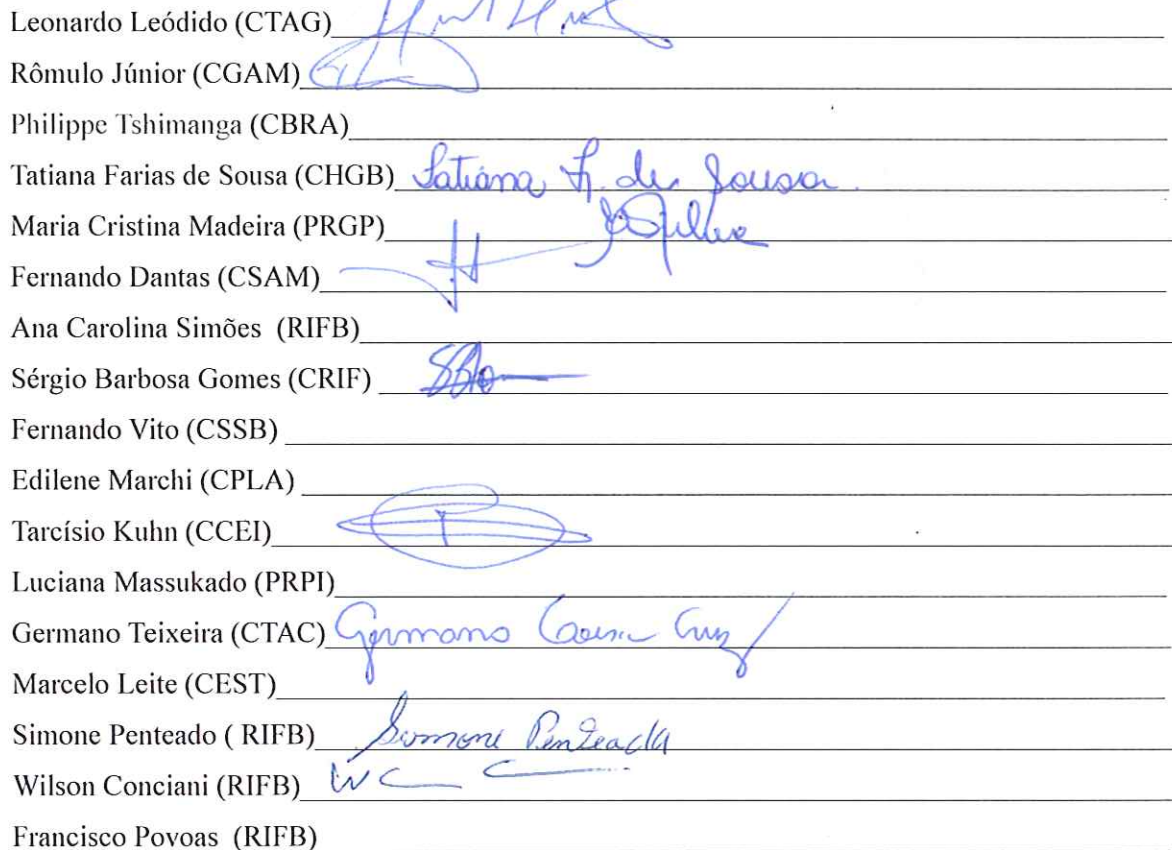 Leonardo Leódido (CTAG)
Rômulo Júnior (CGAM)
Philippe Tshimanga (CBRA)
Tatiana Farias de Sousa (CHGB) Tatiana F. de Sousa.
Maria Cristina Madeira (PRGP)
Fernando Dantas (CSAM)
Ana Carolina Simões (RIFB)
Sérgio Barbosa Gomes (CRIF)
Fernando Vito (CSSB)
Edilene Marchi (CPLA)
Tarcísio Kuhn (CCEI)
Luciana Massukado (PRPI)
Germano Teixeira (CTAC) Germano Cruz
Marcelo Leite (CEST)
Simone Penteado ( RIFB) Simone Penteado
Wilson Conciani (RIFB) WC
Francisco Povoas (RIFB)